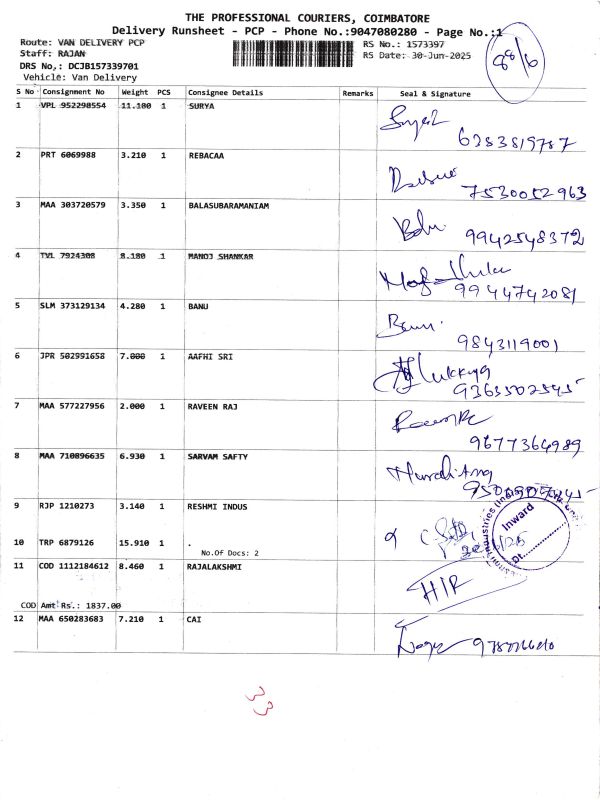 THE PROFESSIONAL COURIERS, COIMBATORE
Delivery Runsheet - PCP - Phone No.:9047080280 - Page No.:1
Route: VAN DELIVERY PCP
Staff: RAJAN
DRS No,: DCJB157339701
Vehicle: Van Delivery
RS No.: 1573397
RS Date: 30-Jun-2025
S No Consignment No Weight PCS Consignee Details Remarks Seal & Signature
1 VPL 952298554 11.100 1 SURYA
6283819787
2 PRT 6069988 3.210 1 REBACAA
7530052963
3 MAA 303720579 3.350 1 BALASUBARAMANIAM
9942548372
4 TVL 7924308 8.180 1 MANOJ SHANKAR
9944742081
5 SLM 373129134 4.280 1 BANU
9843119001
6 JPR 502991658 7.000 1 AAFHI SRI
9363502545
7 MAA 577227956 2.000 1 RAVEEN RAJ
9677364989
8 MAA 710896635 6.930 1 SARVAM SAFTY
9 RJP 1210273 3.140 1 RESHMI INDUS
Inward
10 TRP 6879126 15.910 1 .
No.Of Docs: 2
11 COD 1112184612 8.460 1 RAJALAKSHMI
H/R
COD Amt Rs.: 1837.00
12 MAA 650283683 7.210 1 CAI
33